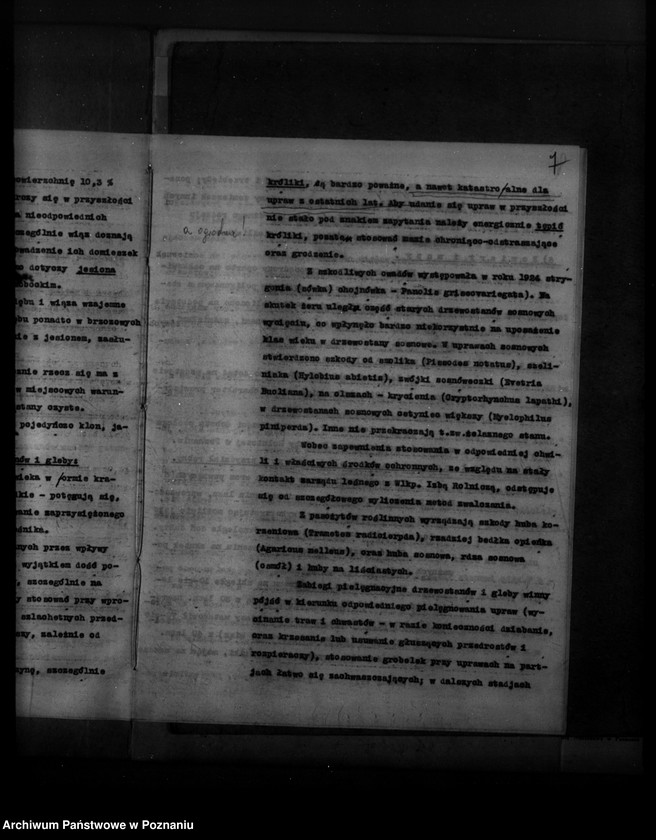 owierzchnię 10,3 %
rozy się w przyszłości
nieodpowiednich
zególnie wiąz doznają
wadzenie ich domieszek
o dotyczy jesiona
ębockim.
ębu i wiąza wzajemne
bu ponadto w brzozowych
ie z jesionem, zasłu-
znie rzecz się ma z
w miejscowych warun-
stany czyste.
pojedyńczo klon, ja-
nów i gleby:
wieka w formie kra-
ikie - potęgują się,
anie zaprzysiężonego
dnika.
nych przez wpływy
wyjątkiem dość po-
, szczególnie na
y stosować przy wpro-
szlachetnych przed-
zy, zależnie od
zynę, szczególnie
7
a ogrodzić!
króliki, są bardzo poważne, a nawet katastrofalne dla
upraw z ostatnich lat. Aby udanie się upraw w przyszłości
nie stało pod znakiem zapytania należy energicznie tępić
króliki, pozatem stosować mazie chroniąco-odstraszające
oraz grodzenie.
Z szkodliwych owadów występowała w roku 1924 stry-
gonia (sówka) chojnówka - Panolis griseovariegata). Na
skutek żeru uległa część starych drzewostanów sosnowych
wycięciu, co wpłynęło bardzo niekorzystnie na uposażenie
klas wieku w drzewostany sosnowe. W uprawach sosnowych
stwierdzono szkody od smolika (Pissodes notatus), szeli-
niaka (Hylobius abietis), zwójki sosnóweczki (Evetria
Buoliana), na olszach - krytienia (Cryptorhynchus lapathi),
w drzewostanach sosnowych cetyniec większy (Myelophilus
piniperda). Inne nie przekraczają t.zw.żelaznego stanu.
Wobec zapewnienia stosowania w odpowiedniej chwi-
li i właściwych środków ochronnych, ze względu na stały
kontakt zarządu leśnego z Wlkp. Izbą Rolniczą, odstępuje
się od szczegółowego wyliczenia metod zwalczania.
Z pasożytów roślinnych wyrządzają szkody huba ko-
rzeniowa (Trametes radiciperda), rzadziej bedłka opieńka
(Agaricus melleus), oraz huba sosnowa, rdza sosnowa
(osmół) i huby na liściastych.
Zabiegi pielęgnacyjne drzewostanów i gleby winny
pójść w kierunku odpowiedniego pielęgnowania upraw (wy-
cinanie traw i chwastów - w razie konieczności dziabanie,
oraz krzesanie lub usuwanie głuszących przedrostów i
rozpieraczy), stosowanie grobelek przy uprawach na part-
jach łatwo się zachwaszczających; w dalszych stadjach
Archiwum Państwowe w Poznaniu